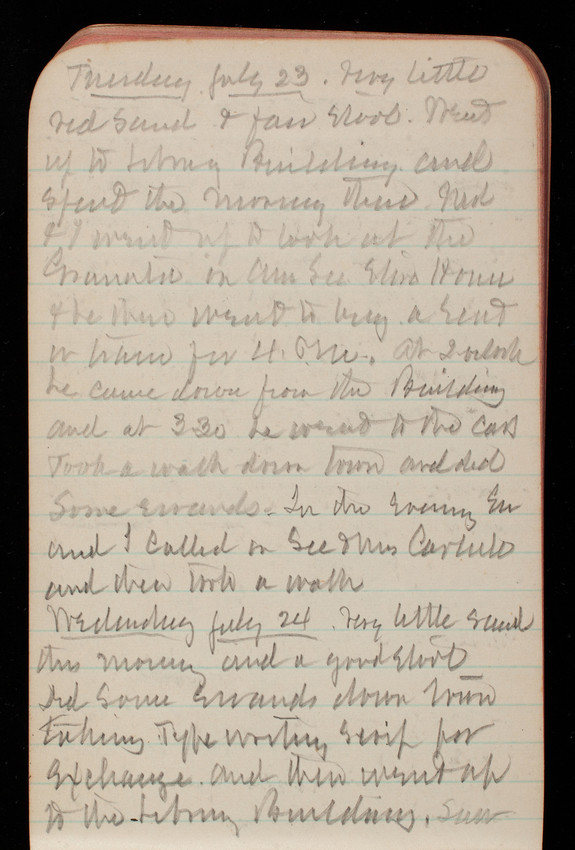 Tuesday July 23. Very little
red sand & fair stool. Went
up to Library Building and
spent the morning there. Ned
& I went up to look at the
in Am Sec Eliza House
& he then went to buy a seat
in train for 4. P.M. At 2 oclock
he came down from the Building
and at 3 30 he went to the cars
Took a walk down town and did
Some errands. In the evening Em
and I called on Sec & Mrs Carlisle
and then took a walk
Wednesday July 24. Very little sand
this morning and a good stool
Did Some Errands down town
taking Type writing for
Exchange. and then went up
to the Library Building. Saw